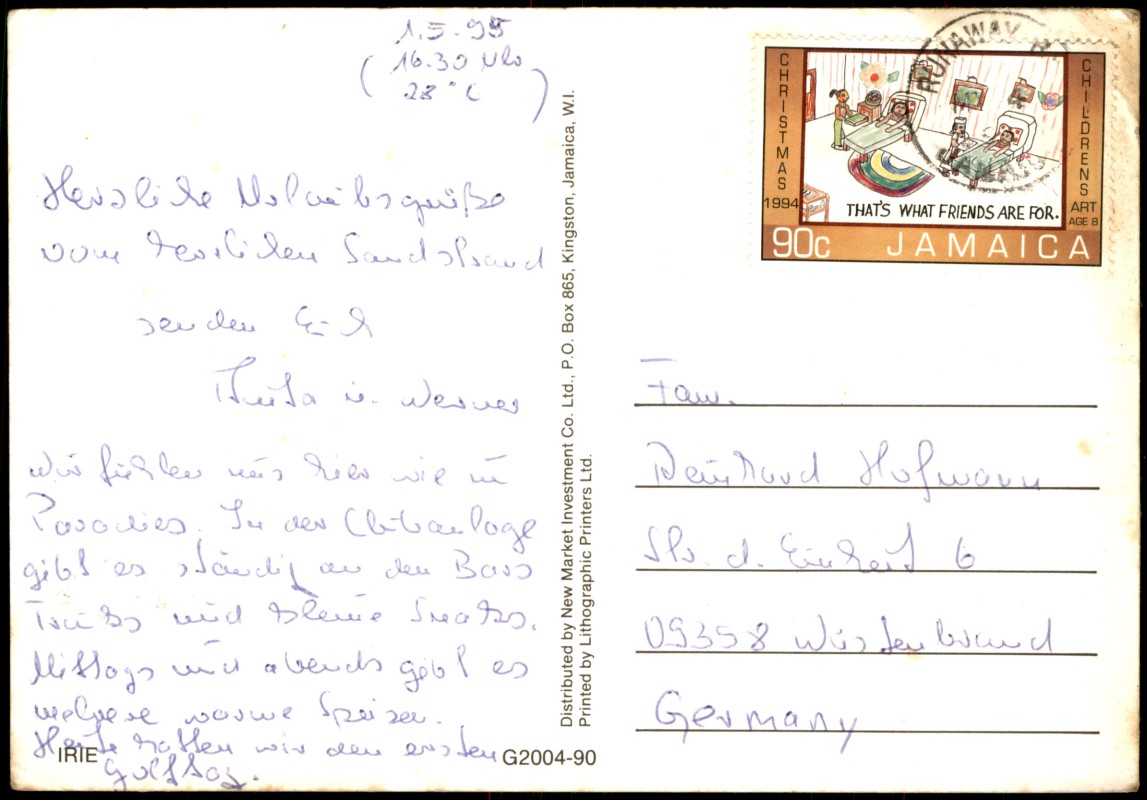 1.5.95
(16.30 Uhr
28 °C)
Herzliche Urlaubsgrüße
vom herrlichen Sandstrand
senden Euch
Anita u. Werner
Wir fühlen uns hier wie im
Paradies. In der Clubanlage
gibt es ständig an den Bars
Drinks und kleine Snacks.
Mittags und abends gibt es
mehrere warme Speisen.
Heute hatten wir den ersten
Golftag.
IRIE
G2004-90
Distributed by New Market Investment Co. Ltd., P.O. Box 865, Kingston, Jamaica, W.I.
Printed by Lithographic Printers Ltd.
RUNAWAY
CHRISTMAS
1994
CHILDRENS
ART
AGE 8
THAT'S WHAT FRIENDS ARE FOR.
90c JAMAICA
Fam.
Reinhard Hofmann
Str. d. Einheit 6
09358 Wüstenbrand
Germany